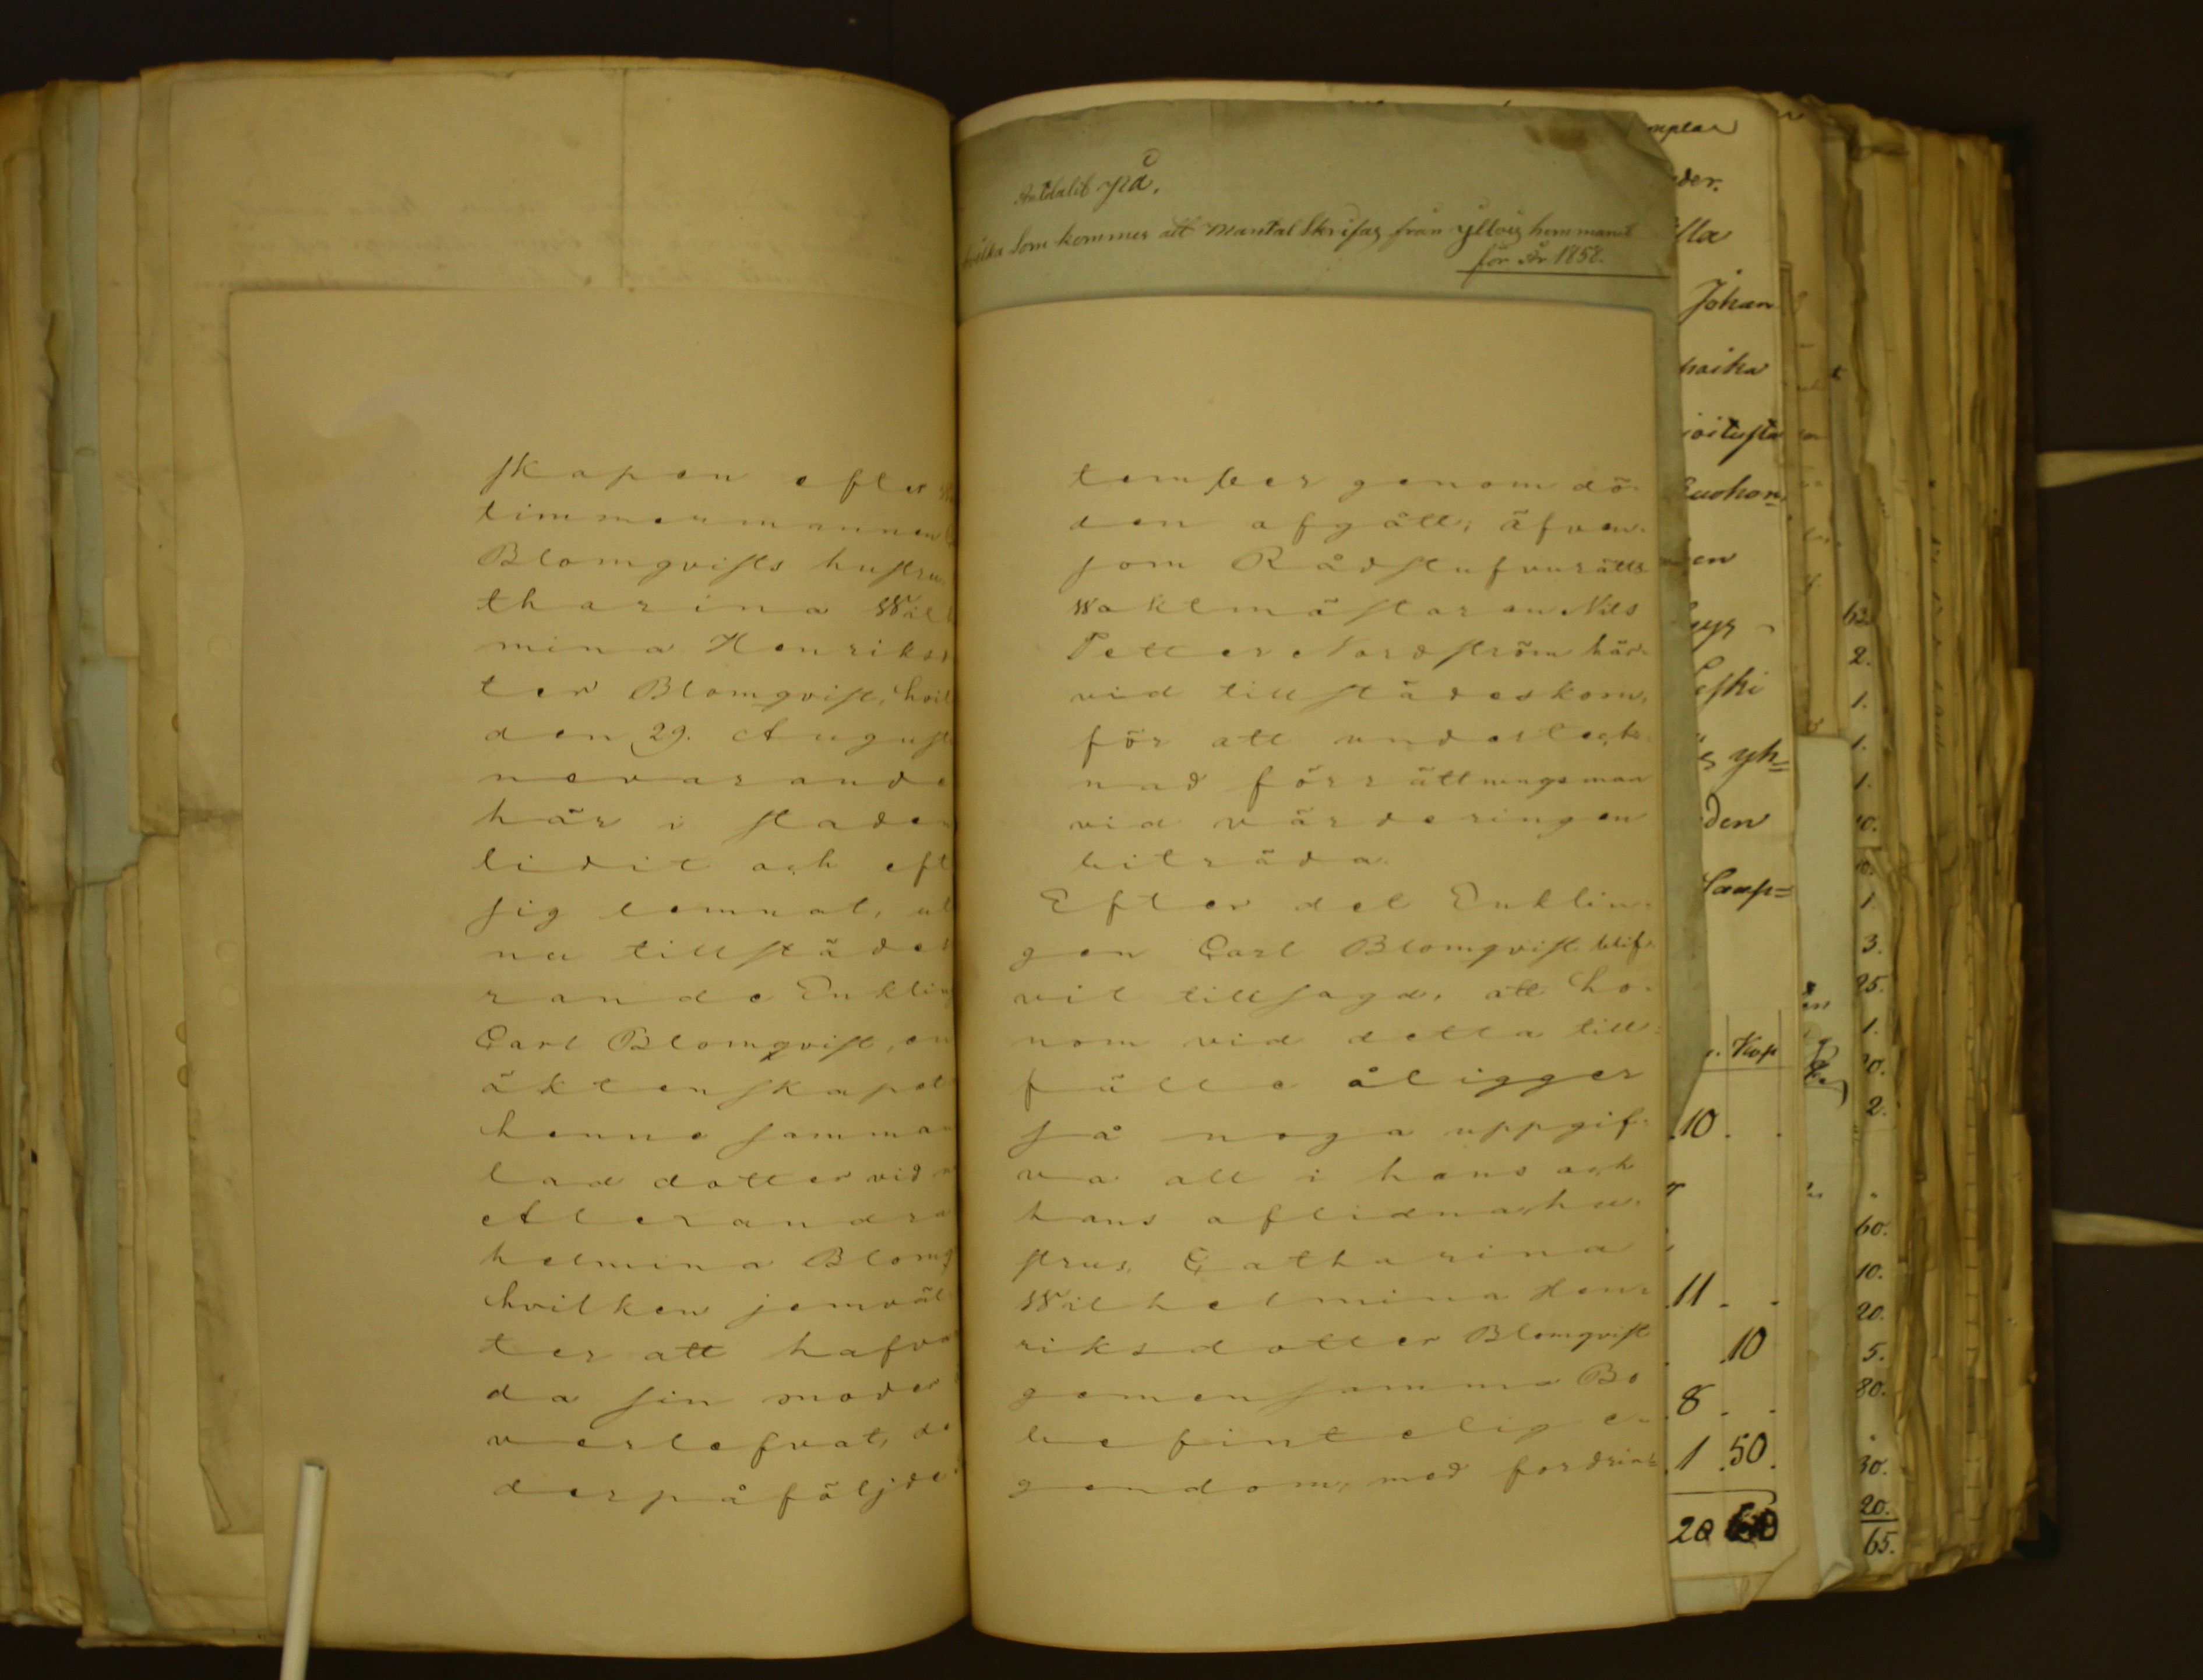 skapen efter
timmermannen
Blomqvists hustru
tharina Wil
mina Henriks
ter Blomqvist, hvil
den 29. August
nevarande
här i staden
lidit och eft
sig lemnat, ut
na tillstädes
rande Enkling
Carl Blomqvist, en
äktenskapet
henne samman
lad dotter vid n
Alexandra
helmina Blomq
hvilken jemväl
ter att hafva
da sin moder
verlefvat, de
derpåföljde
Antal på,
hvilka Som kommer att Mantal Skrifas från yllvis hemmanet
för År 1858.
tember genom dö-
den afgått; äfven-
som Rådstufvurätts
Waktmästaren Nils
Petter Nordström här-
vid tillstädeskom,
för att underteck-
nad förrättningsman
vid värderingen
biträda.
Efter det Enklin-
gen Carl Blomqvist blif-
vit tillsagd, att ho-
nom vid detta till-
fälle åligger
så noga uppgif-
va allt i hans och
hans aflidna hu-
strus, Catharina
Wilhelmina Hen-
riksdotter Blomqvist
gemensamma Bo
befintelig e-
gendom, med fordrin-
mplar
der.
lla
Johan
haika
joitusta
Ruohon
en
eski
yh=
den
Kop
10
11
10
8
1 .50.
20
62.
2.
1.
1.
1.
10.
1.
3.
25.
1.
2.
60.
10.
20.
5.
80.
30.
20.
65.